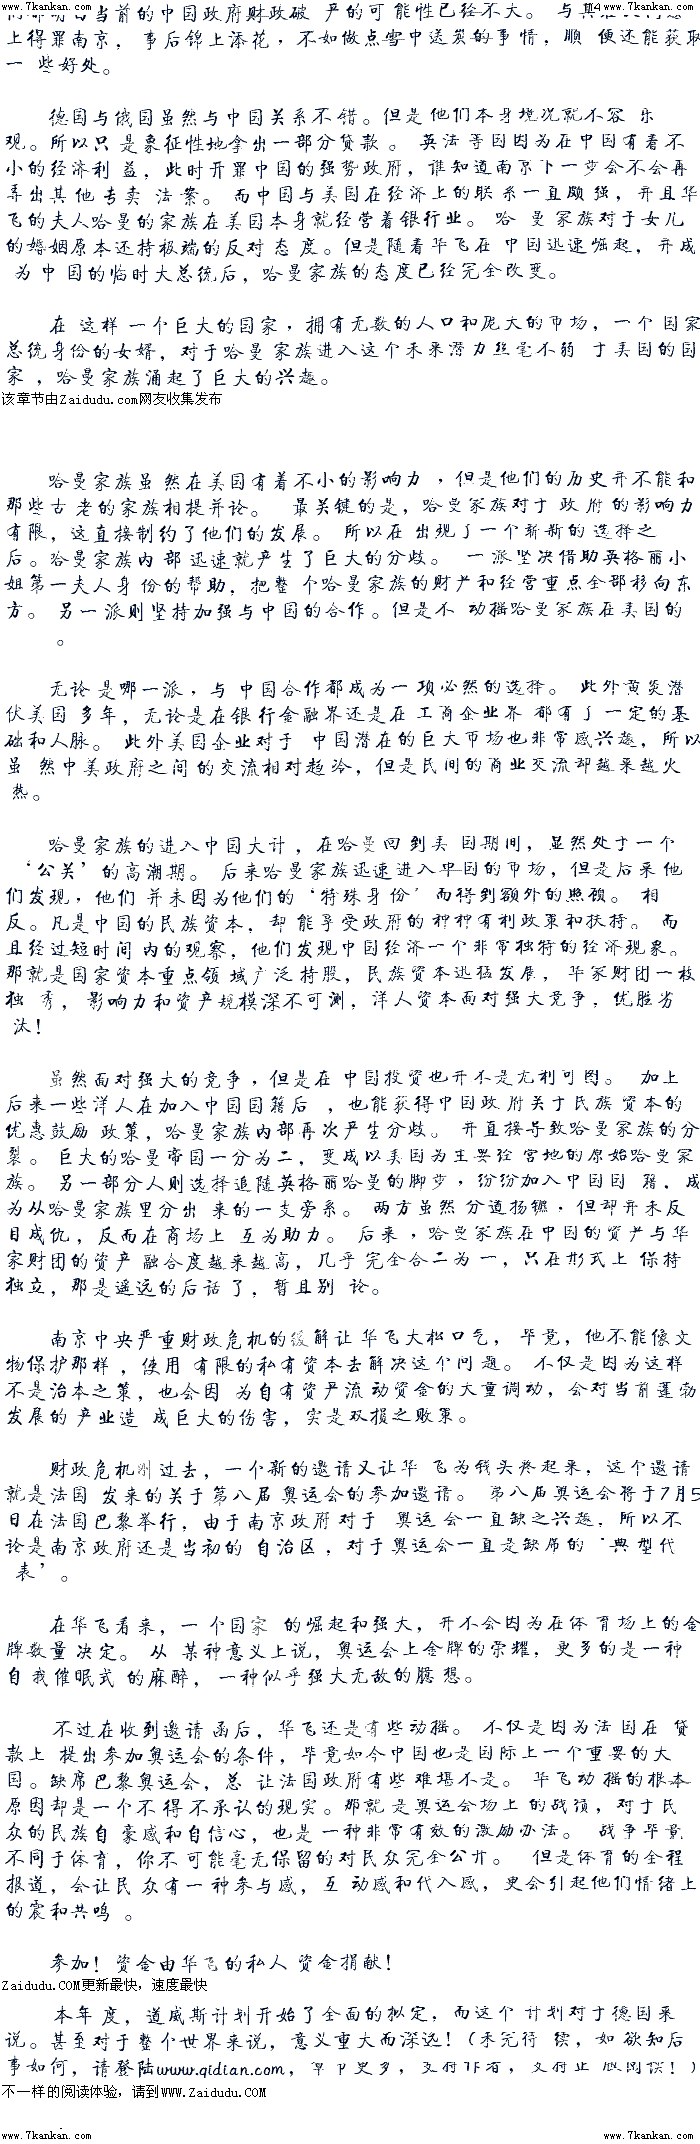 www.7kankan.com www.7kankan.com www.7kankan.com
当前的中国政府财政破 产的可能性已经不大。 与其
上得罪南京， 事后锦上添花，不如做点雪中送炭的事情，顺 便还能获取
一 些好处。
德国与俄国虽然与中国关系不错。但是他们本身境况就不容 乐
观。所以只 是象征性地拿出一部分贷款 。 英法等国因为在中国有着不
小的经济利 益，此时开罪中国的强势政府，谁知道南京下一步会不会再
弄出其 他 专卖 法 案。 而中国与美国在经济上的联 系一直颇 强，并且华
飞的夫人哈曼的家族在美国本身就经营着银行业。 哈 曼家族对于女儿
的婚姻原本还持极端的反对 态 度。但是随着华飞在 中国迅速崛起，并成
为 中 国的临时大总统后，哈曼家族的态度已经完全改变。
在 这样 一个巨大的国家，拥有无数的人口和庞大的市场，一个 国家
总统身份的女婿，对于哈曼 家族进入这个未来潜力丝毫不弱 于美国的国
家 ，哈曼家族涌起了巨大的兴趣。
该章节由Zaidudu.com网友收集发布
哈曼家族虽 然在美国有着不小的影响力 ，但是他们的历史并不能和
那些古 老的家族相提并论。 最关键的是，哈曼家族对于 政 府 的影响力
有限，这直接制约了他们的发展。 所以在 出现了一个新新的 选择之
后。哈曼家族内 部 迅速就产生了巨大的分歧。 一派坚决借助英格丽小
姐第一夫人身 份的帮助，把整 个哈曼家族的财产和经营重点全部移向东
方。 另一派则坚持加强与中国的合作。但是不 动摇哈曼家族在美国的
。
无论 是哪一派，与 中国合作都成为一 项必然的选择。 此外黄炎潜
伏美国 多年，无论是在银行金融界还是在工商企业界 都有了一定的基
础和人脉。 此外美国企业对于 中国潜在的巨大市场也非常感兴趣，所以
虽 然中美政府之间的交流相对趋冷，但是民间的商业交流却越来越火
热。
哈曼家族的进入中国大计 ，在哈曼回到美 国期间，显然处于一个
‘公关’的高潮期。 后来哈曼家族迅速进入中国的市场，但是后来他
们发现，他们 并未因为他们的‘特殊身份’而得到额外的照顾。 相
反。凡是中国的民族资本，却 能享受政府的种种有利政策和扶持。 而
且经过短时间 内的观察，他们发现中国经济一个非常独特的经济现象。
那就是国家资本重点领 域广泛持股，民族资本迅猛发展，华家财团一枝
独 秀，影响力和资产规模深不可测，洋人资本面对强大竞争，优胜劣
汰！
虽然面对强大的竞争，但是在 中国投资也并不是无利可图。 加上
后来一些洋人在加入中国国籍后 ，也能获得中国政 府关于民族 资本的
优惠鼓励 政策，哈曼家族内部再次产生分歧。 并直接导致哈曼家族的分
裂。 巨大的哈曼帝国一分为二，变成以美国为主要经 营地的原始哈曼家
族。 另一部分人则选择追随英格丽哈曼的脚步，纷纷加入中国国 籍，成
为从哈曼家族里分出 来的一支旁系。 两方虽然 分道扬镳，但却并未反
目成仇，反而在商场上 互为助力。 后来，哈曼家族在中国的资产与华
家财团的资产 融合度越来越高，几乎 完全合二为一，只在形式上 保持
独立，那是遥远的后话 了，暂且别 论。
南京中央严重财政危机的缓解让 华飞大松口气， 毕竟，他不能像文
物保护那样 ，使用 有限的私有资本去解决这个问题。 不仅是因为这样
不是治本之策，也会因 为自有资产流 动资金的大量调动，会对当前蓬勃
发展的 产业造 成巨大的伤害，实是双损之败策。
财政危机刚 过去，一个新的邀请又让华 飞为钱头疼起来，这个邀请
就是法国 发来的关于第八届 奥运会的参加邀请。 第八届奥运会将于7月5
日在法国巴黎举行，由于南京政府对于 奥运 会一直缺乏兴趣，所以不
论是南京政府还是当初的 自治区，对于奥运会一直是缺席的‘典 型代
表’。
在华飞看来，一 个国家 的崛起和强大，并不会因为在体育场上的金
牌数量 决定。 从 某种意义上说，奥运会上金牌的荣耀，更多的是一种
自 我催眠式 的麻醉，一种似乎强大无敌的臆 想。
不过在收到邀请 函后，华飞还是有些动摇。 不仅是因为法 国在 贷
款上 提出参加奥运会的条件，毕竟如今中国也是国际上一个重要的大
国。缺席巴黎奥运会，总 让法国政府有些 难堪不是。 华飞动 摇的根本
原因却是一个不得不承认的现实。那就 是奥运会场上 的战绩，对于民
众的民族自 豪感和自信心，也是一种非常有效的激励办法。 战争毕竟
不同于体育，你不 可能毫无保留的对民众完全公开。 但是体育的全程
报道，会让民 众有一种参与感，互 动感和代入感，更会引起他们情绪上
的震和共鸣 。
参加！ 资金由华飞的私人 资金捐献！
Zaidudu.COM更新最快，速度最快
本年 度，道威斯计划开始了全面的拟定，而这个 计划对于德国来
说。甚至对于整个世界来说，意义重大而深远！(未完待 续，如 欲知后
事如何，请登陆www.qidian.com，章节更多，支持作者，支持正 版阅读！)
不一样的阅读体验，请到WWW.Zaidudu.COM
www.7kankan.com www.7kankan.com www.7kankan.com